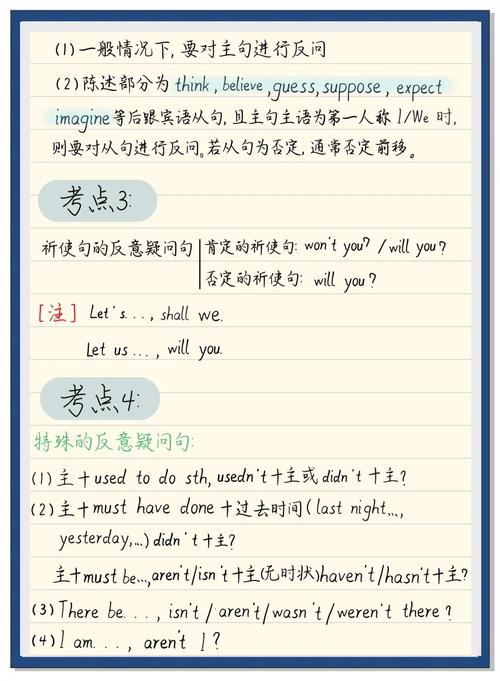 (1) 一般情况下, 要对主句进行反问
(2) 陈述部分为 think, believe, guess, suppose, expect
imagine等后跟宾语从句, 且主句主语为第一人称 I/We 时,
则要对从句进行反问。若从句为否定, 通常否定前移。
考点3:
祈使句的反意疑问句 肯定的祈使句: won't you? / will you?
否定的祈使句: will you?
[注] Let's..., shall we.
Let us ..., will you.
考点4:
特殊的反意疑问句:
(1) 主+used to do sth, usedn't+主或 didn't +主?
(2) 主+must have done +过去时间( last night...,
yesterday,...) didn't +主?
主+must be...,aren't/isn't+主(无时状)haven't/hasn't+主?
(3) There be...., isn't / aren't/wasn't/weren't there?
(4) I am...., aren't I?